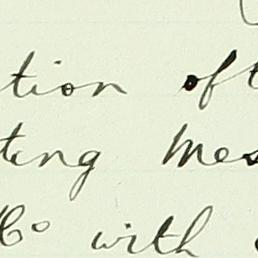 tion of t
ting Mes
& Co with